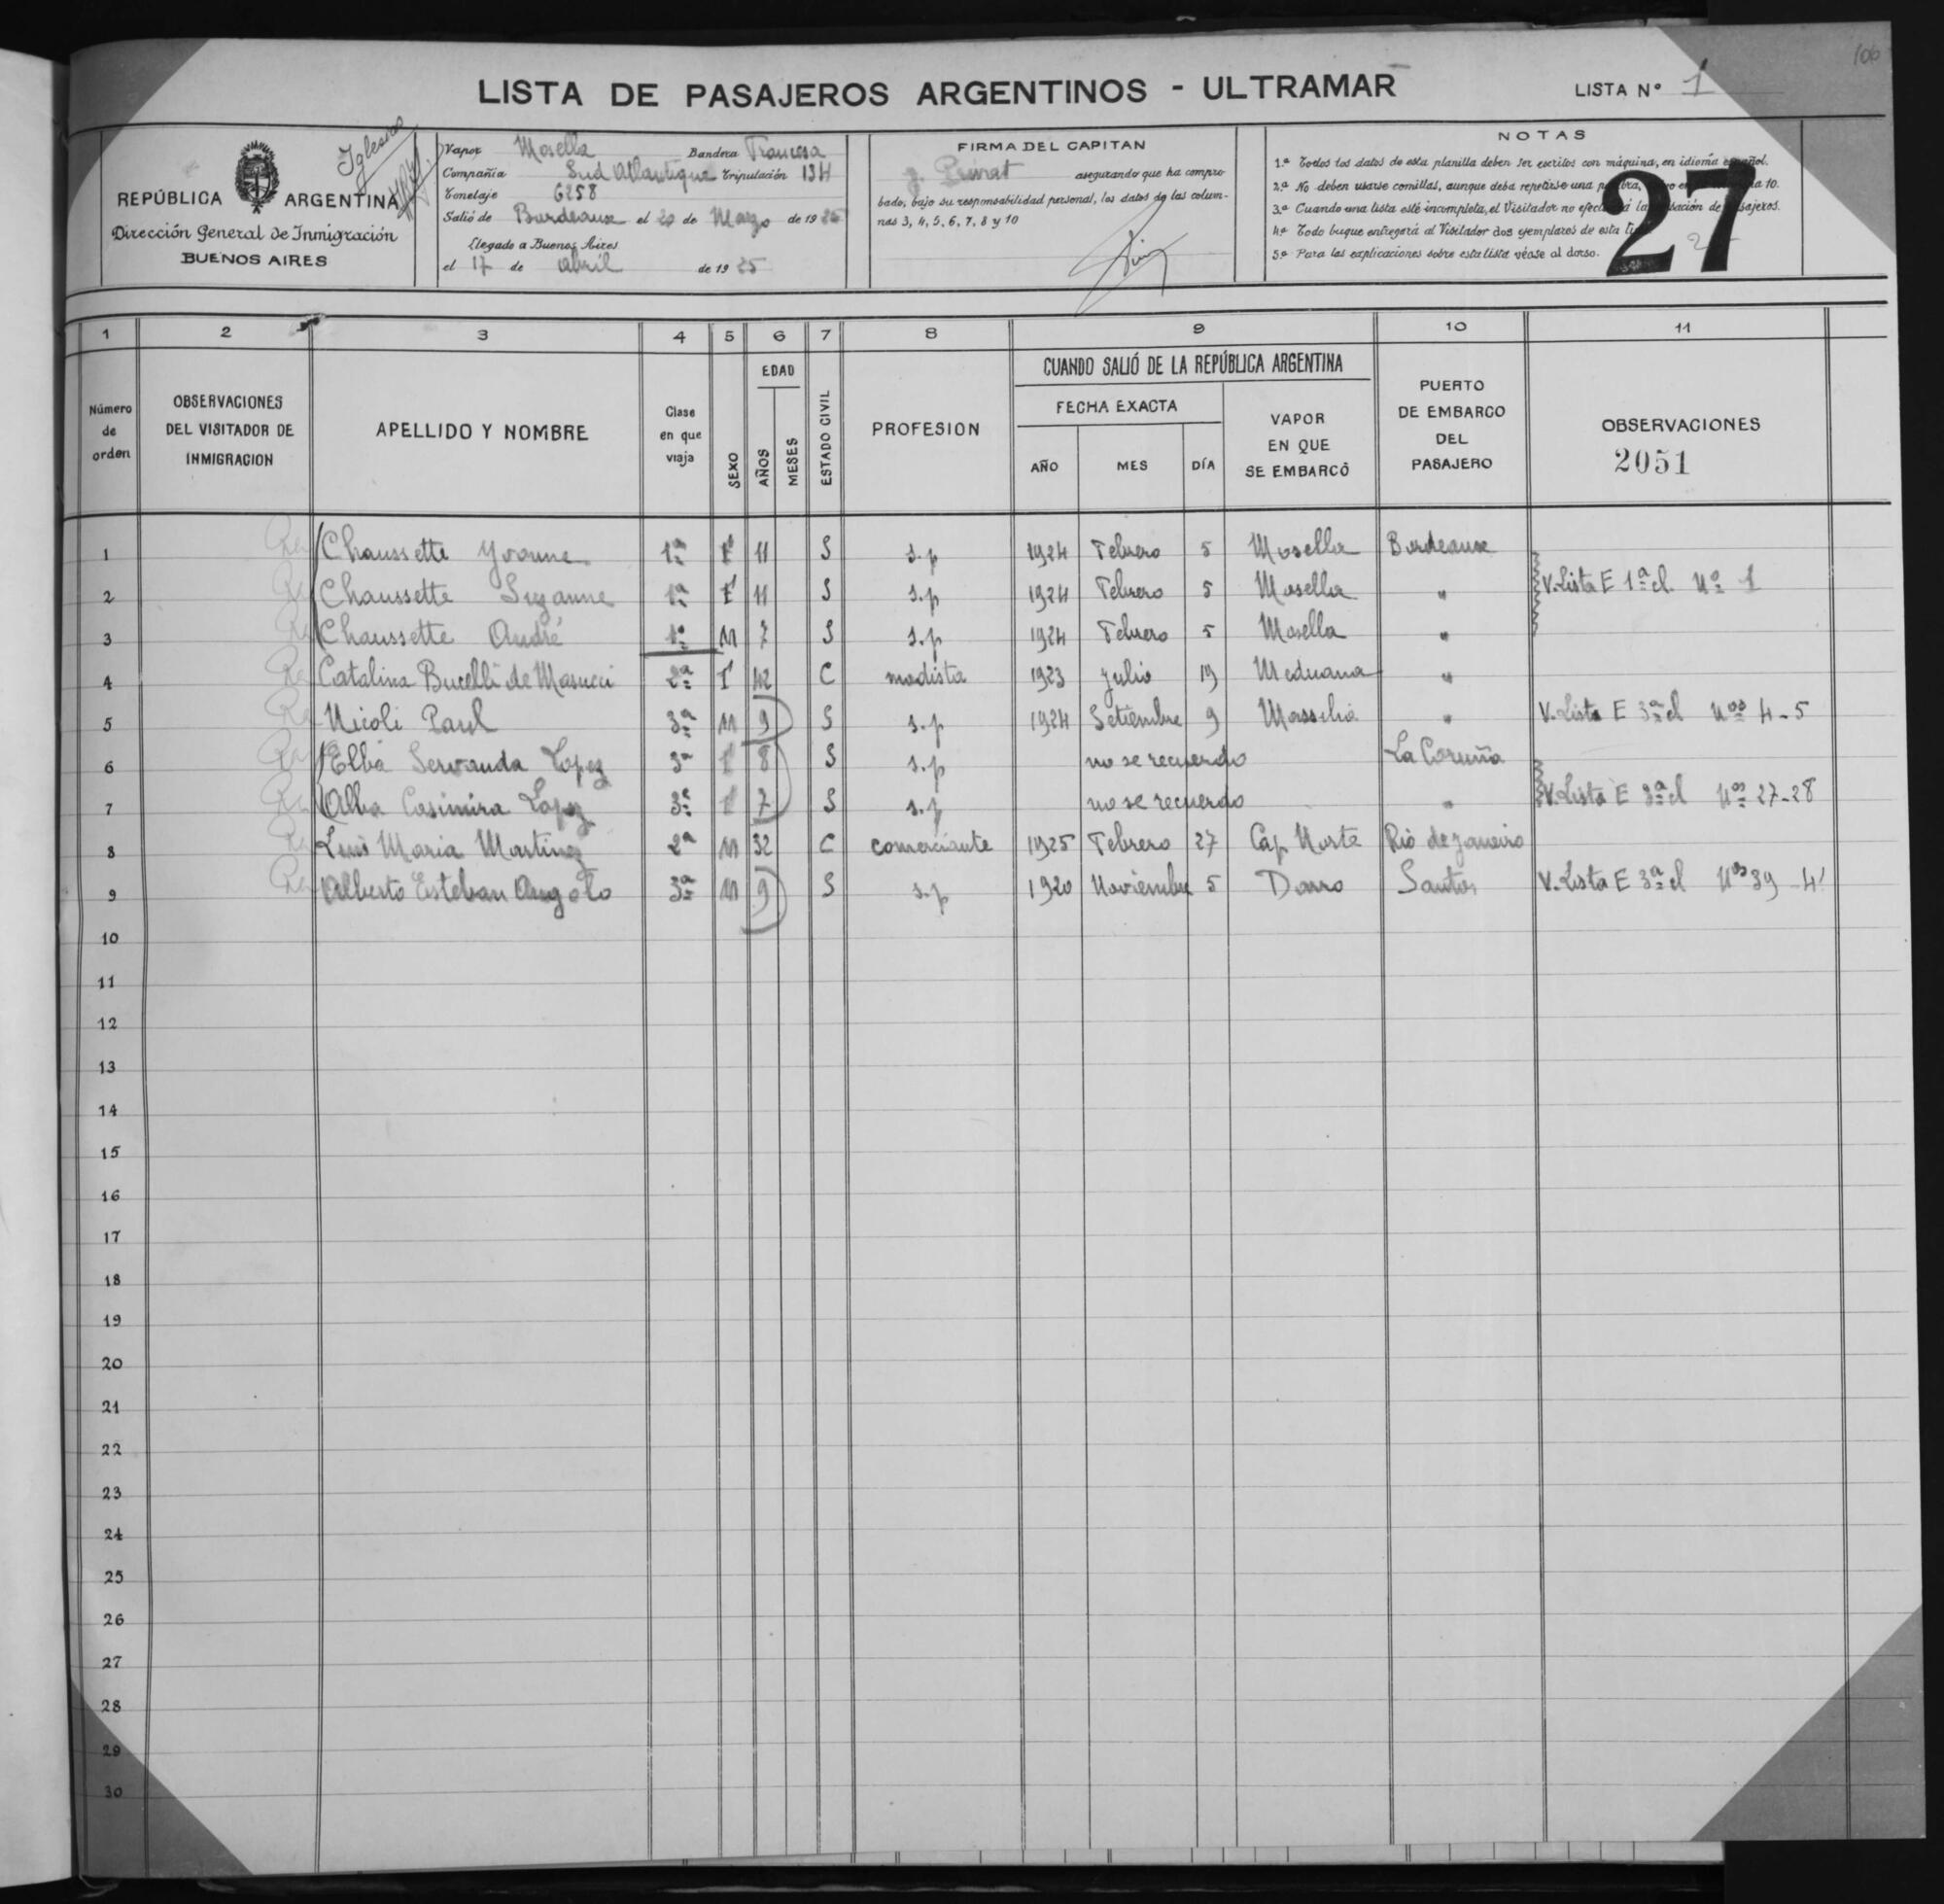 106
LISTA DE PASAJEROS ARGENTINOS - ULTRAMAR
LISTA Nº 1
REPÚBLICA ARGENTINA
Dirección General de Inmigración
BUENOS AIRES
Iglesias
Vapor Mosella Bandera Francesa
Compañía Sud Atlantique Tripulación 134
Tonelaje 6258
Salió de Burdeaux el 20 de Marzo de 1925
Llegado a Buenos Aires
el 17 de abril de 1925
FIRMA DEL CAPITAN
J. Privat asegurando que ha compro
bado, bajo su responsabilidad personal, los datos de las colum-
nas 3, 4, 5, 6, 7, 8 y 10
NOTAS
1.ª Todos los datos de esta planilla deben ser escritos con máquina, en idioma español.
2.ª No deben usarse comillas, aunque deba repetirse una 10.
3.ª Cuando una lista esté incompleta, el Visitador no
4.ª Todo buque entregará al Visitador dos ejemplares de esta
5.ª Para las explicaciones sobre esta lista véase al dorso.
27
1 2 3 4 5 6 7 8 9 10 11
Número de orden
OBSERVACIONES DEL VISITADOR DE INMIGRACION
APELLIDO Y NOMBRE
Clase en que viaja
SEXO
EDAD
AÑOS
MESES
ESTADO CIVIL
PROFESION
CUANDO SALIÓ DE LA REPÚBLICA ARGENTINA
FECHA EXACTA
AÑO MES DÍA
VAPOR EN QUE SE EMBARCÓ
PUERTO DE EMBARCO DEL PASAJERO
OBSERVACIONES
2051
1 Chaussette Yvonne 1ª F 11 S s.p 1924 Febrero 5 Mosella Burdeaux
2 Chaussette Suzanne 1ª F 11 S s.p 1924 Febrero 5 Mosella " V. Lista E 1ª cl. Nº 1
3 Chaussette André 1ª M 7 S s.p 1924 Febrero 5 Mosella "
4 Catalina Bucelli de Masucci 2ª F 42 C modista 1923 Julio 19 Meduana "
5 Nicoli Paul 3ª M 9 S s.p 1924 Setiembre 9 Massilia " V. Lista E 3ª cl Nos 4-5
6 Elba Servanda Lopez 3ª F 8 S s.p no se recuerdo La Coruña
7 Alba Casimira Lopez 3ª F 7 S s.p no se recuerdo " V. Lista E 3ª cl Nos 27-28
8 Luis Maria Martinez 2ª M 32 C comerciante 1925 Febrero 27 Cap Norte Rio de Janeiro
9 Alberto Esteban Angolo 3ª M 9 S s.p 1920 Noviembre 5 Darro Santos V. Lista E 3ª cl Nos 39-41
10
11
12
13
14
15
16
17
18
19
20
21
22
23
24
25
26
27
28
29
30